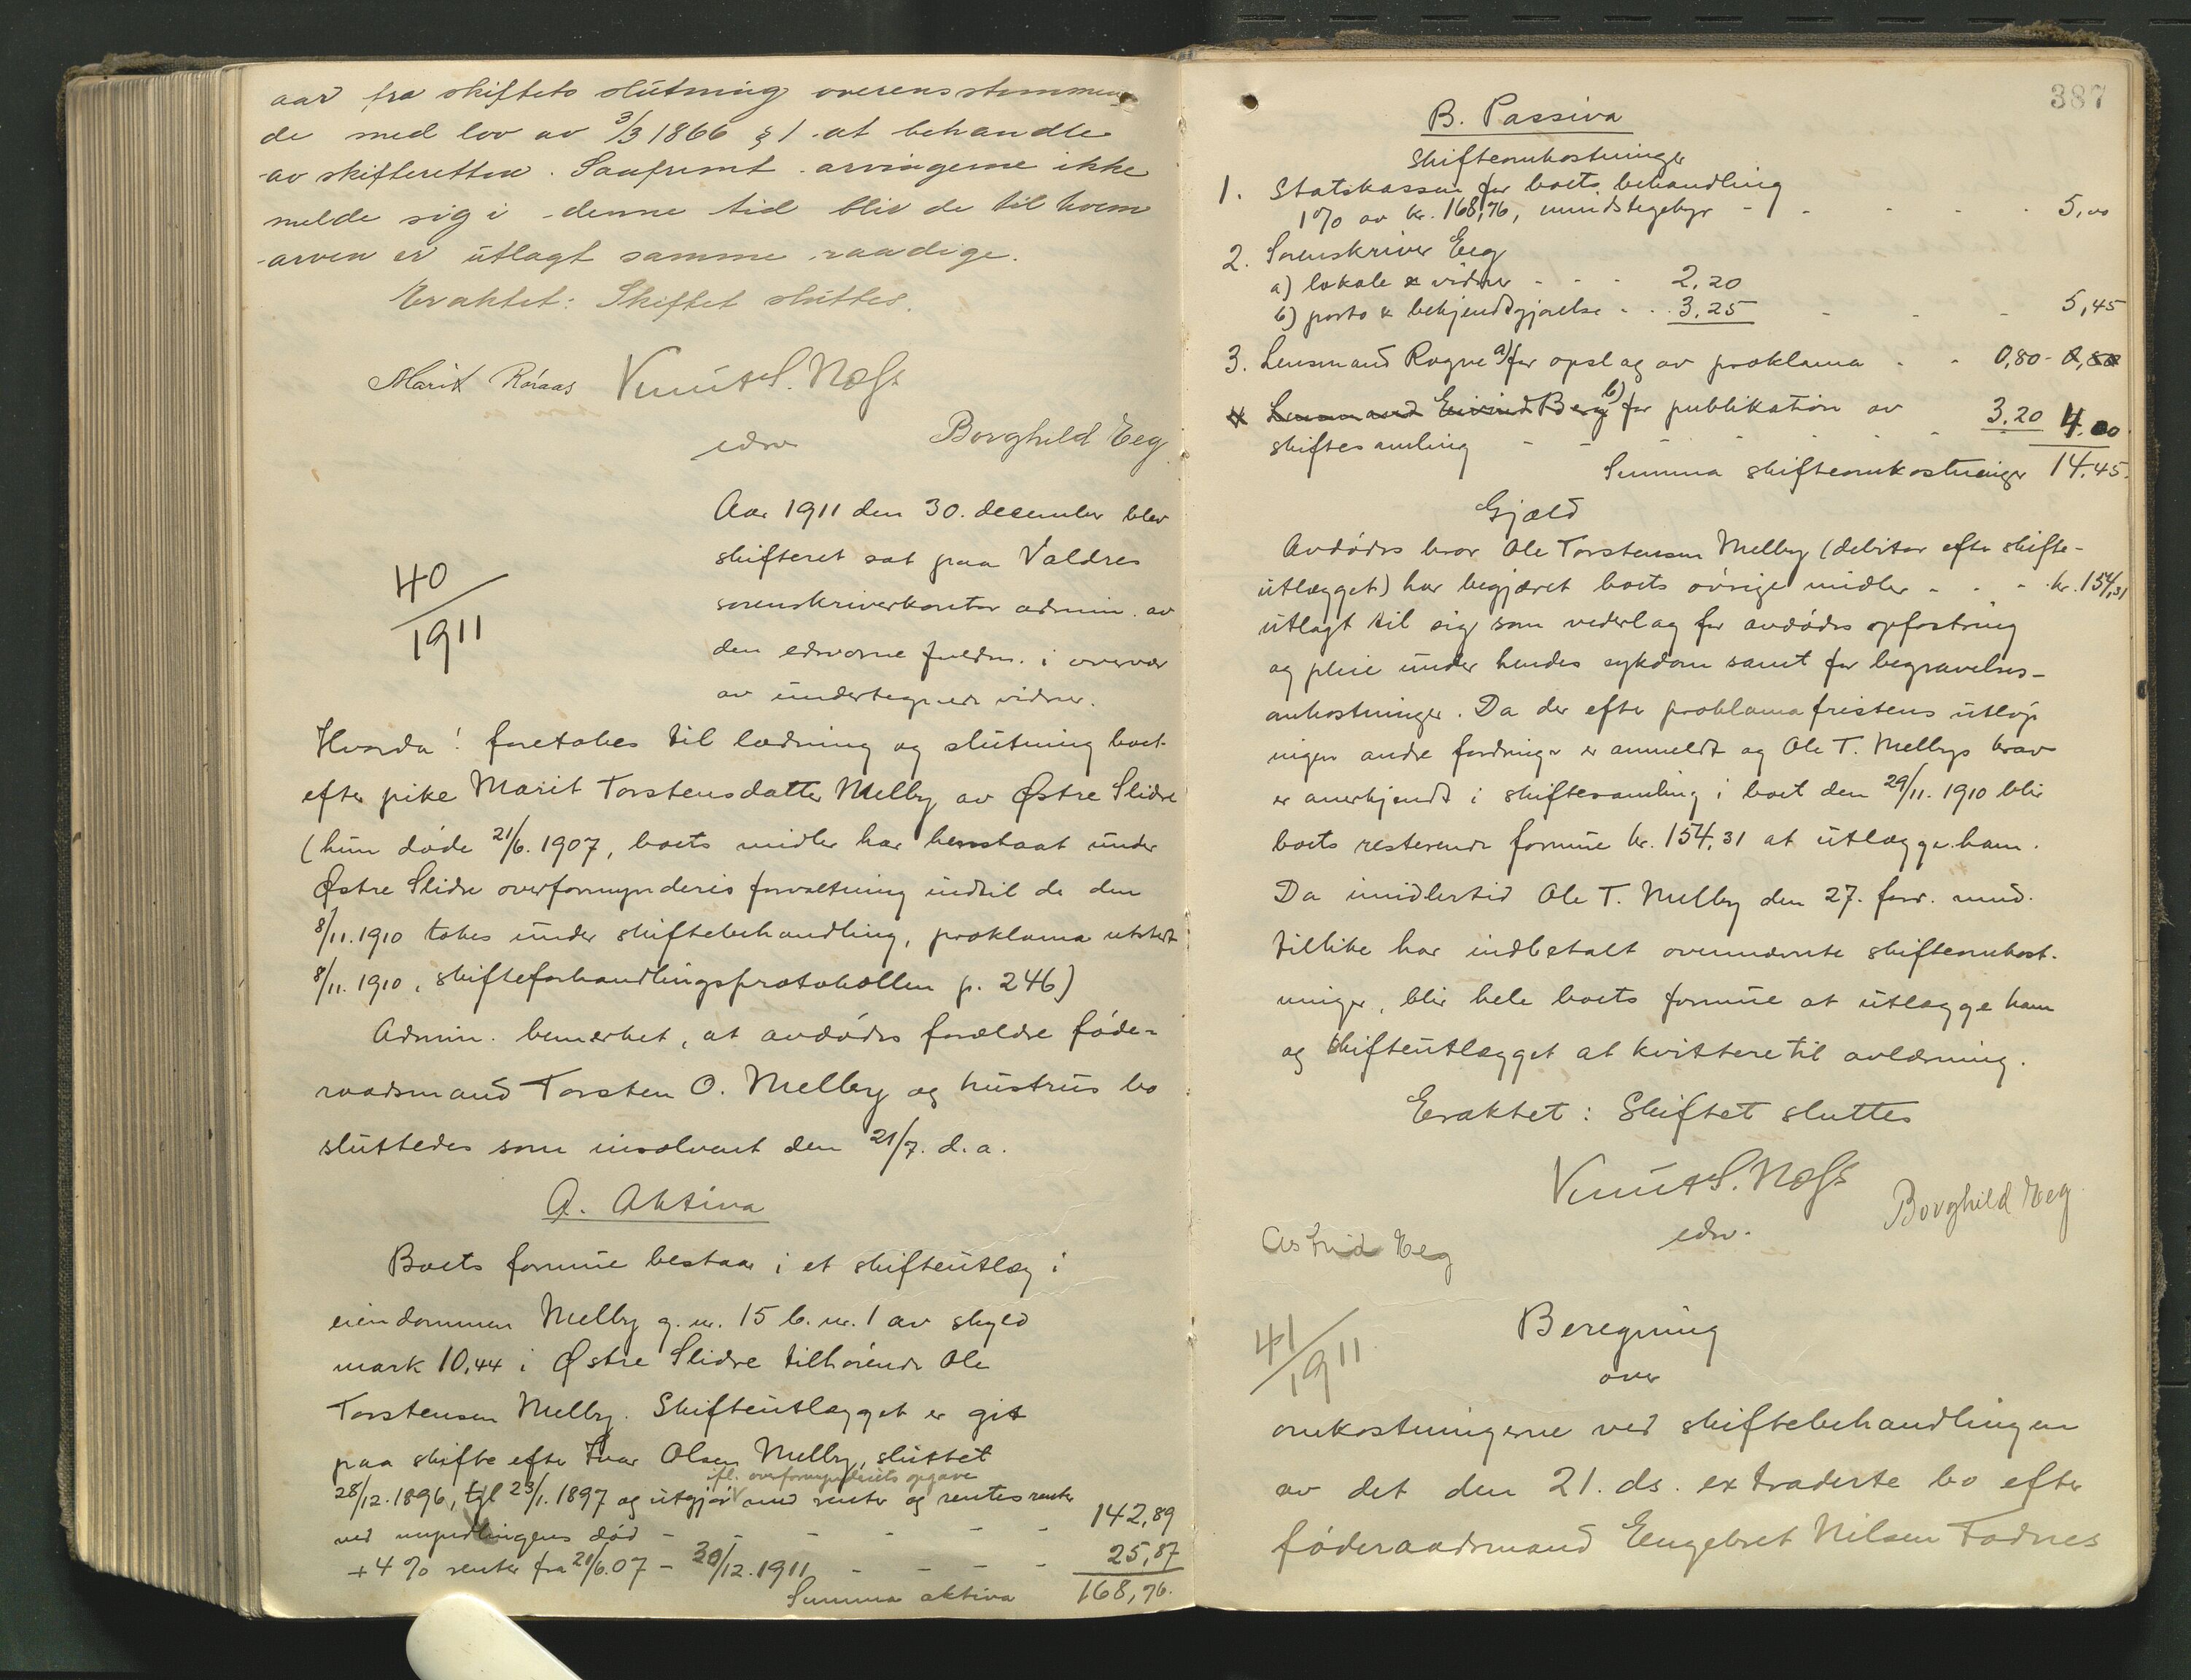 aar fra skiftets slutning overensstemmen
de med lov av 3/3 1866 § 1 at behandle
av skifteretten. Saafremt arvingerne ikke
melde sig i denne tid blir de til hvem
arven er utlagt samme raadige.
Eraktet: Skiftet sluttes.
Marit Røraas Knut S. Næss
edsv Borghild Eeg
40/1911
Aar 1911 den 30. december blev
skifteret sat paa Valdres
sorenskriverkontor admin. av
den edsvorne fuldm. i overvær
av undertegnede vidner.
Hvorda: foretokes til lodning og slutning boet
efter pike Marit Torstensdatter Melby av Østre Slidre
(hun døde 21/6. 1907, boets midler har henstaat under
Østre Slidre overformynderis forvaltning indtil de den
8/11. 1910 tokes under skiftebehandling, proklama utstedt
8/11. 1910, skifteforhandlingsprotokollen p. 246)
Admin. bemerket, at avdødes forældre føde-
raadsmand Torsten O. Melby og hustrus bo
sluttedes som insolvent den 21/7. d.a.
A. Aktiva
Boets formue bestaar i et skifteutlæg i
eiendommen Melby g.nr. 15 b.nr. 1 av skyld
mark 10,44 i Østre Slidre tilhørende Ole
Torstensen Melby. Skifteutlægget er git
paa skifte efter Ivar Olsen Melby, sluttet
ifl. overformynderiets opgave
28/12. 1896, tgl 23/1. 1897 og utgjør med renter og rentesrenter
ved myndlingens død - - - - - - 142,89
+ 4 % renter fra 21/6.07 - 30/12. 1911 - - - - 25,87
Summa aktiva 168,76.
387
B. Passiva
Skifteomkostninger
1. Statskassen for boets behandling
1% av kr. 168,76, mindstegebyr - - - - 5,00
2. Sorenskriver Eeg
a) lokale & vidner - - - 2,20
b) porto & bekjendtgjørelse - - 3,25 - - - 5,45
3. Lensmand Rogne a) for opslag av proklama - - 0,80 - 0,80
4 Lensmand Eivind Berg b) for publikation av 3.20 4.00
skiftesamling - - - - - - -
Summa skifteomkostninger 14.45.
Gjæld
Avdødes bror Ole Torstensen Melby (debitor efter skifte-
utlægget) har begjæret boets øvrige midler - - - kr. 154,31
utlagt til sig som vederlag for avdødes opfostring
og pleie under hendes sykdom samt for begravelses-
omkostninger. Da der efter proklamafristens utløp
ingen andre fordringer er anmeldt og Ole T. Melbys krav
er anerkjendt i skiftesamling i boet den 29/11. 1910 blir
boets resterende formue kr. 154,31 at utlægge ham.
Da imidlertid Ole T. Melby den 27. forr. mnd.
tillike har indbetalt ovennævnte skifteomkost-
ninger, blir hele boets formue at utlægge ham
og skifteutlægget at kvittere til avlæsning.
Eraktet: Skiftet sluttes
Knut S. Næss
edsv. Borghild Eeg
Astrid Eeg
41/1911.
Beregning
over
omkostningerne ved skiftebehandlingen
av det den 21. ds. extraderte bo efter
føderaadsmand Engebret Nilsen Fodnes